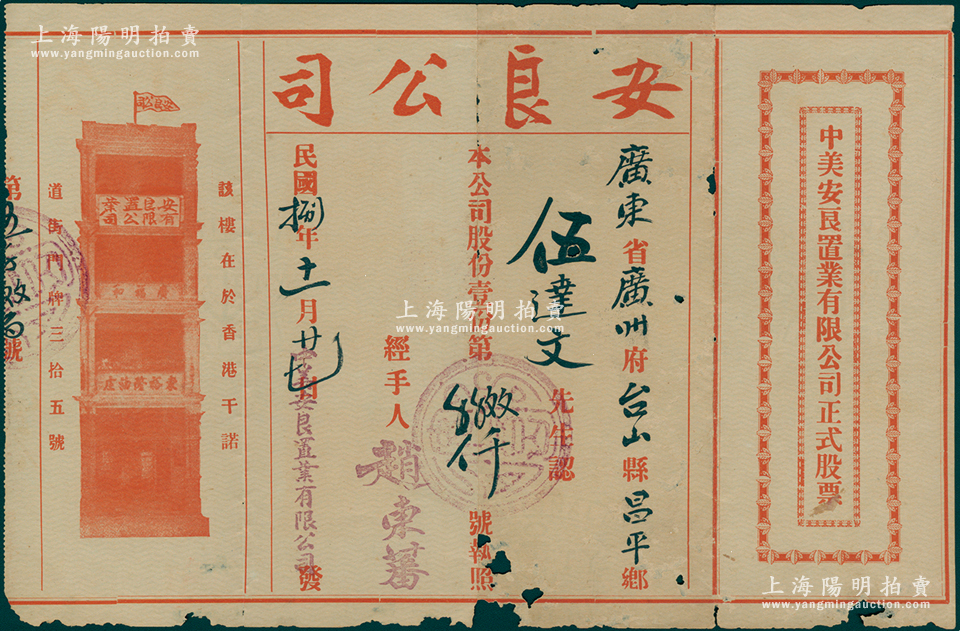 上海陽明拍賣
www.yangmingauction.com
中美安良置業有限公司正式股票
安良公司
廣東省廣州府台山縣昌平鄉
伍達文先生認
本公司股份壹 第 仟號執照
經手人趙東蕃
民國捌年十二月廿 日
安良置業有限公司發
該樓在於香港干諾
安良置業
有限公司
廣福和
東裕隆油庄
道街門牌三拾五號
第 號
上海陽明拍賣
www.yangmingauction.com
上海陽明拍賣
www.yangmingauction.com